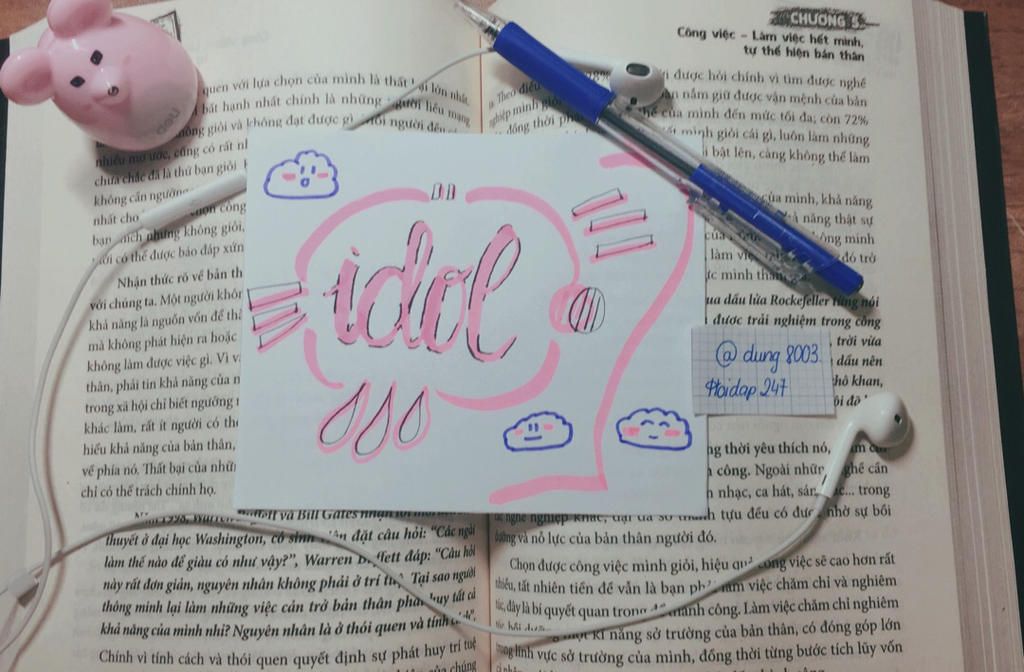 CHƯƠNG 5
Công việc – Làm việc hết mình,
tự thể hiện bản thân
deli
quen với lựa chọn của mình là thất
lại lớn nhất.
bất hạnh nhất chính là những người liều mạng
không giỏi và không đạt được gì.
người đều
nhiều mơ ước, cũng có rất
chưa chắc đã là thứ bạn giỏi
không cần ngưỡng
nhất cho
bạn thích nhưng không giỏi,
mới có thể được báo đáp xứn
Nhận thức rõ về bản th
với chúng ta. Một người khôn
khả năng là nguồn vốn để th
mà không phát hiện ra hoặc
không làm được việc gì. Vì v
thân, phải tin khả năng của n
trong xã hội chỉ biết ngưỡng
khác làm, rất ít người có th
hiểu khả năng của bản thân,
về phía nó. Thất bại của nhữn
chỉ có thể trách chính họ.
Năm 1998, Warren Buffett và Bill Gates nhận lời
thuyết ở đại học Washington, có sinh viên đặt câu hỏi: “Các ngài
làm thế nào để giàu có như vậy?”, Warren Buffett đáp: “Câu hỏi
này rất đơn giản, nguyên nhân không phải ở trí tuệ. Tại sao người
thông minh lại làm những việc cản trở bản thân phát huy tất cả
khả năng của mình nhỉ? Nguyên nhân là ở thói quen và tính cách”.
Chính vì tính cách và thói quen quyết định sự phát huy trí tuệ
của chúng
idol
@ dung 8003
#toidap 247
Theo điều
78%
được hỏi chính vì tìm được nghề
nghiệp mình giỏi
nắm giữ được vận mệnh của bản
đồng thời phát
của mình đến mức tối đa; còn 72%
mình giỏi cái gì, luôn làm những
bật lên, càng không thể làm
của mình, khả năng
năng thật sự
không minh
làm việc
đó trở
ực mình
vua dầu lửa Rockefeller từng nói
được trải nghiệm trong công
trời vừa
dầu nên
khô khan,
đồng thời yêu thích nó,
công. Ngoài những nghề cần
nhạc, ca hát,
trong
các nghề nghiệp khác, đại đa số thành tựu đều có được nhờ sự bồi
dưỡng và nỗ lực của bản thân người đó.
Chọn được công việc mình giỏi, hiệu quả công việc sẽ cao hơn rất
nhiều, tất nhiên tiền đề vẫn là bạn phải làm việc chăm chỉ và nghiêm
túc, đây là bí quyết quan trọng để thành công. Làm việc chăm chỉ nghiêm
kĩ năng sở trường của bản thân, có đóng góp lớn
trong lĩnh vực sở trường của mình, đồng thời từng bước tích lũy vốn